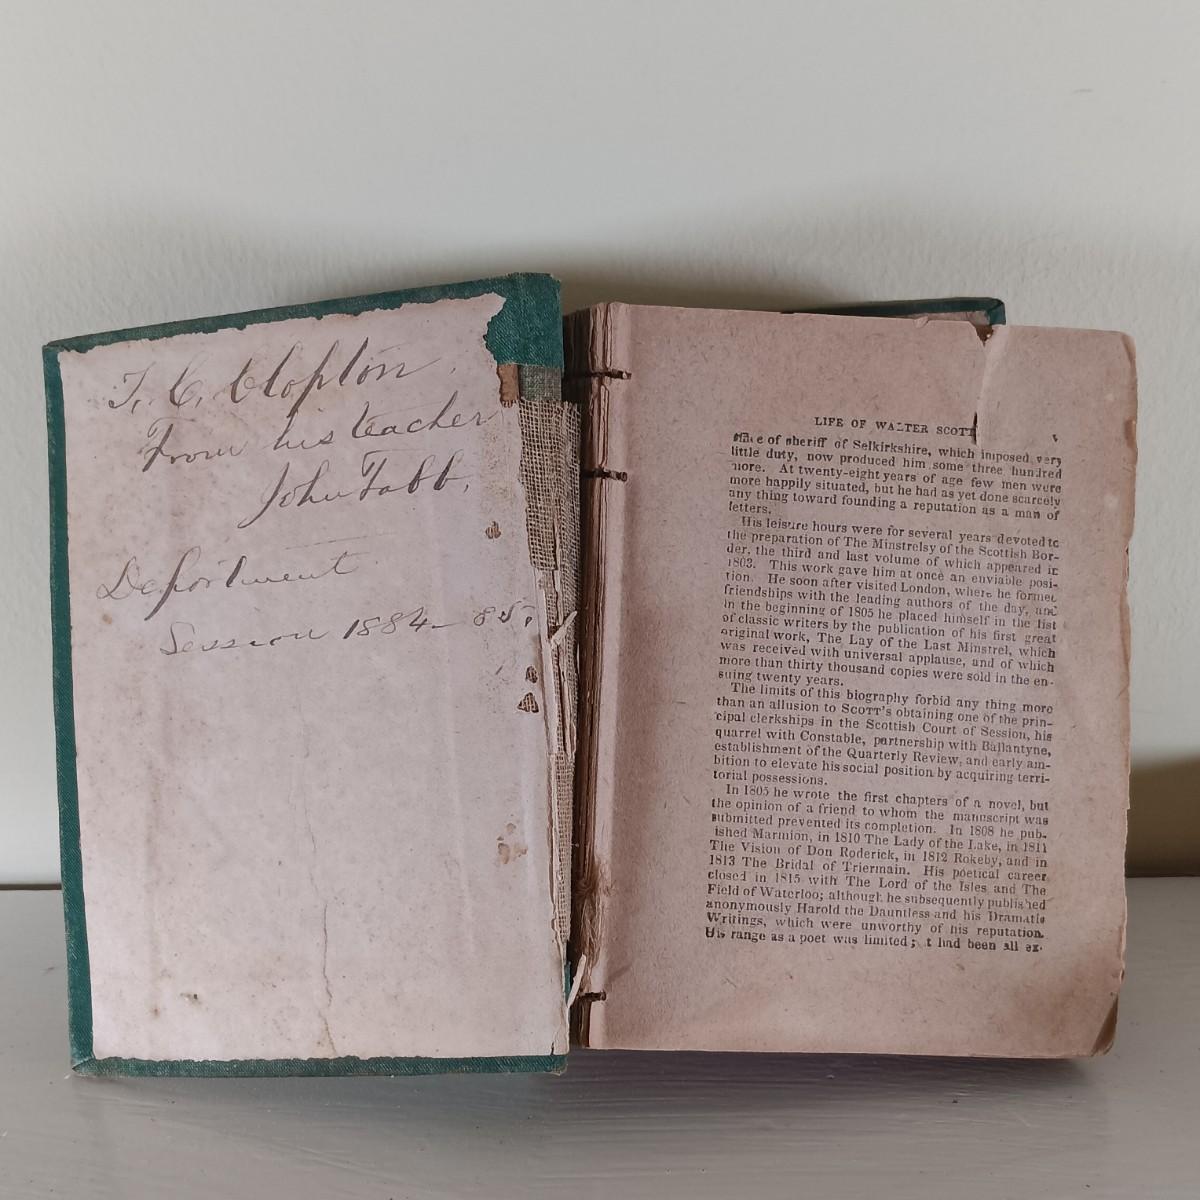 T. C. Clopton.
From his teacher
John Tabb,
Department
Session 1884-85.
LIFE OF WALTER SCOTT
v
office of sheriff of Selkirkshire, which imposed very
little duty, now produced him some three hundred
more. At twenty-eight years of age few men were
more happily situated, but he had as yet done scarcely
any thing toward founding a reputation as a man of
letters.
His leisure hours were for several years devoted to
the preparation of The Minstrelsy of the Scottish Bor-
der, the third and last volume of which appeared in
1803. This work gave him at once an enviable posi-
tion. He soon after visited London, where he formed
friendships with the leading authors of the day, and
in the beginning of 1805 he placed himself in the list
of classic writers by the publication of his first great
original work, The Lay of the Last Minstrel, which
was received with universal applause, and of which
more than thirty thousand copies were sold in the en-
suing twenty years.
The limits of this biography forbid any thing more
than an allusion to SCOTT'S obtaining one of the prin-
cipal clerkships in the Scottish Court of Session, his
quarrel with Constable, partnership with Ballantyne,
establishment of the Quarterly Review, and early am-
bition to elevate his social position by acquiring terri-
torial possessions.
In 1805 he wrote the first chapters of a novel, but
the opinion of a friend to whom the manuscript was
submitted prevented its completion. In 1808 he pub-
ished Marmion, in 1810 The Lady of the Lake, in 1811
The Vision of Don Roderick, in 1812 Rokeby, and in
1813 The Bridal of Triermain. His poetical career
closed in 1815 with The Lord of the Isles and The
Field of Waterloo; although he subsequently published
anonymously Harold the Dauntless and his Dramatic
Writings, which were unworthy of his reputation.
His range as a poet was limited; t had been all ex-